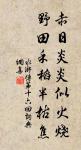 赤日炎炎似火燒
野田禾稻半枯焦
水滸傳第十六回詞典